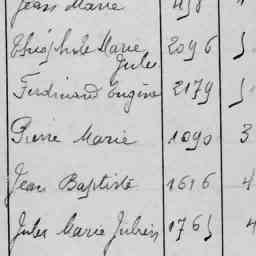 Jean Marie
Théophile Marie 2096 5
Jules
Ferdinand Eugène 2179 5
Pierre Marie 1090 3
Jean Baptiste 1616 4
Jules Marie Julien 1765 4